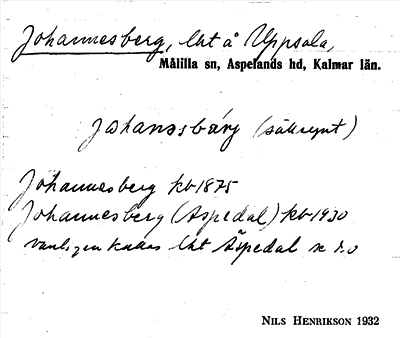 Johannesberg, lht å Uppsala,
Målilla sn, Aspelands hd, Kalmar län.
johansbärj (sällsynt)
Johannesberg kb 1875
Johannesberg (Äspedal) kb 1930
vanligen kallas lht Äspedal
NILS HENRIKSON 1932